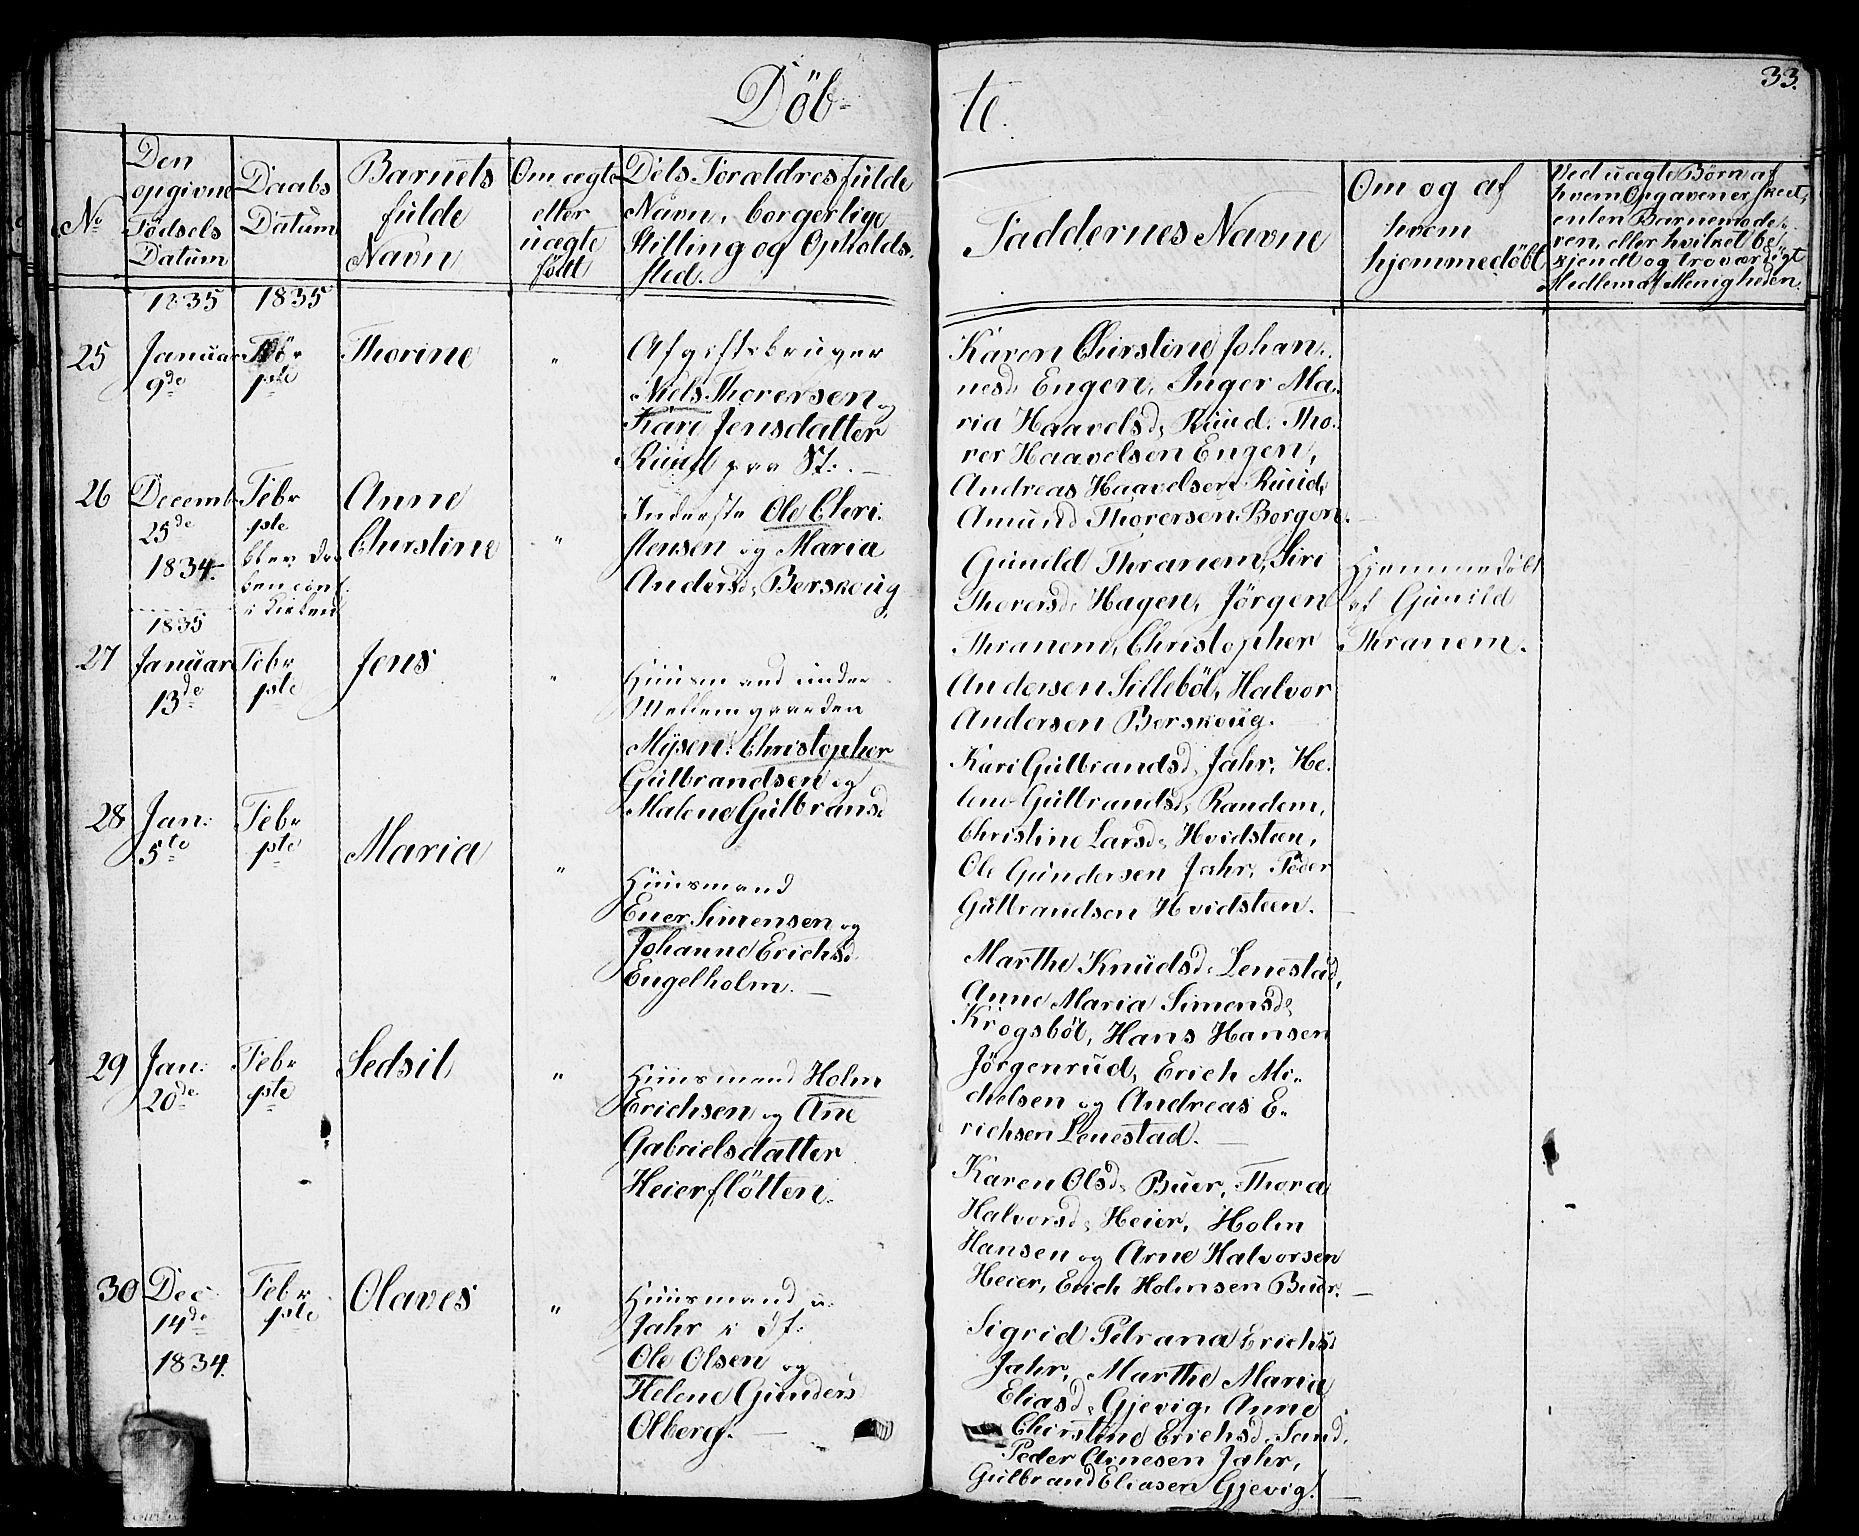 Döb-
te.
33.
No
Den
opgivne
Födsels
Datum
Daabs
Datum
Barnets
fulde
Navn
Om ægte
eller
uægte
födt
Dets Forældres fulde
Navn, borgerlige
Stilling og Opholds-
sted.
Faddernes Navne
Om og af
hvem
hjemmedöbt
Ved uægte Børn af
hvem Opgaven er skeet,
enten Barnemode-
ren, eller hvilket be-
kjendt og troværdigt
Medlem af Menigheden.
1835
1835
25
Januar
9de
Febr
1ste
Thorine
"
Afgiftsbruger
Niels Thorersen og
Kari Jensdatter
Ruud paa St: .—
Karen Chirstine Johan-
nesd: Engen, Inger Ma-
ria Haavelsd: Ruud, Tho-
rer Haavelsen Engen,
Andreas Haavelsen Ruud,
Amund Thorersen Borgen.—
26
Decemb
25de
1834.
Febr
1ste
blev Daa-
ben conf.
i Kirken
Anne
Chirstine
"
Inderste Ole Chri-
stensen og Maria
Andersd: Berskoug
Gunild Thranem, Siri
Thorersd: Hagen, Jörgen
Thranem, Christopher
Andersen Silleböl, Halvor
Andersen Berskoug.
Hjemmedöbt
af Gunild
Thranem.
1835
27
Januar
13de
Febr
1ste
Jens
"
Huusmand under
Mellemgaarden
Mysen: Christopher
Gulbrandsen og
Malene Gulbransd
Kari Gulbrandsd: Jahr, He-
lene Gulbrandsd: Randem,
Christine Larsd: Hvidsteen,
Ole Gundersen Jahr, Peder
Gulbrandsen Hvidsteen.—
28
Jan:
5te
Febr
1ste
Maria
"
Huusmand
Ener Simensen og
Johanne Erichsd
Engelholm.—
Marthe Knudsd: Lenestad,
Anne Maria Simensd:
Krogsböl, Hans Hansen
Jörgenrud, Erich Mi-
chelsen og Andreas E-
richsen Lenestad.—
29
Jan:
20de
Febr
1ste
Sedsil
"
Huusmand Holm
Erichsen og Ane
Gabrielsdatter
Heierflötten.
Karen Olsd: Buer, Thora
Halvorsd: Heier, Holm
Hansen og Arne Halvorsen
Heier, Erich Holmsen Buer.—
30
Dec
14de
1834.
Febr
1ste
Olaves
"
Huusmand u:
Jahr
Ole Olsen og
Helene Gunders
Olberg.—
Sigrid Petrana Erichsd
Jahr, Marthe Maria
Eliasd: Gjevig, Anne
Chirstine Erichsd: Sand,
Peder Arnesen Jahr,
Gulbrand Eliasen Gjevig.—